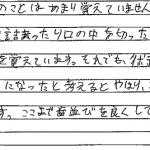 のことはあまり覚えていません
詰まったり口の中を切った
を覚えています。それでも、
になったと考えるとやはり、
す。ここまで歯並びを良くして